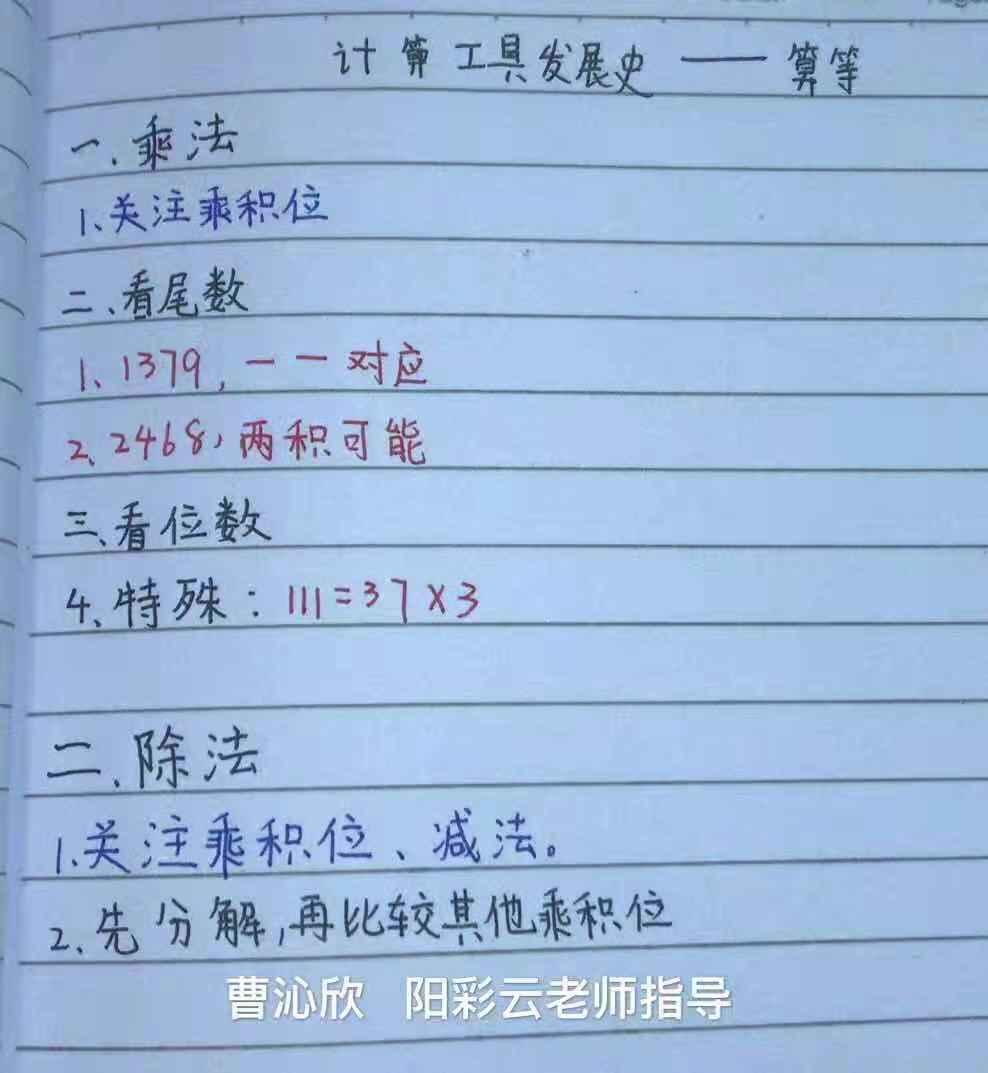 计算工具发展史 —— 算等
一、乘法
1、关注乘积位
二、看尾数
1、1379，一一对应
2、2468，两积可能
三、看位数
4、特殊：111=37×3
二、除法
1、关注乘积位、减法。
2、先分解，再比较其他乘积位
曹沁欣 阳彩云老师指导